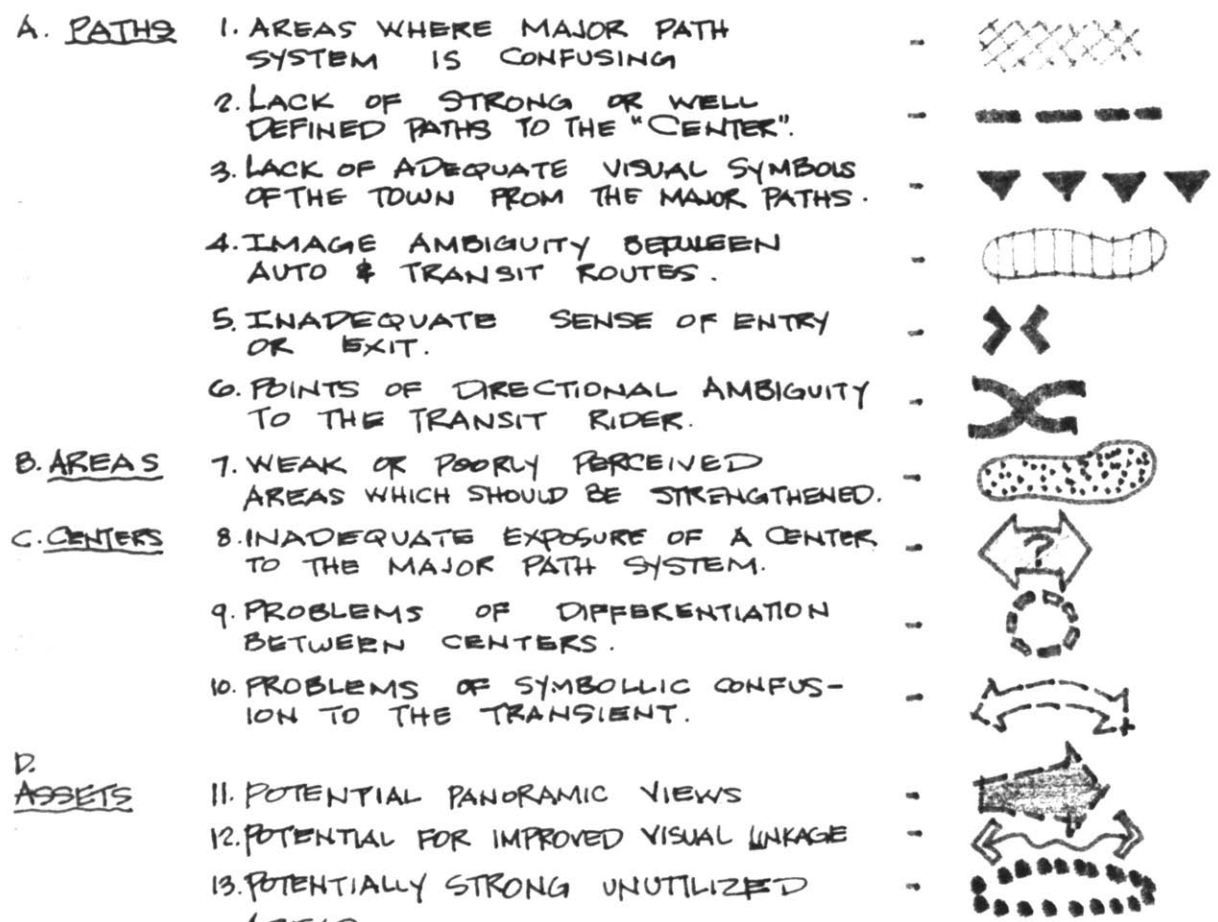 A. PATHS 1. AREAS WHERE MAJOR PATH
SYSTEM IS CONFUSING
2. LACK OF STRONG OR WELL
DEFINED PATHS TO THE "CENTER".
3. LACK OF ADEQUATE VISUAL SYMBOLS
OF THE TOWN FROM THE MAJOR PATHS.
4. IMAGE AMBIGUITY BETWEEN
AUTO & TRANSIT ROUTES.
5. INADEQUATE SENSE OF ENTRY
OR EXIT.
6. POINTS OF DIRECTIONAL AMBIGUITY
TO THE TRANSIT RIDER.
B. AREAS 7. WEAK OR POORLY PERCEIVED
AREAS WHICH SHOULD BE STRENGTHENED.
C. CENTERS 8. INADEQUATE EXPOSURE OF A CENTER
TO THE MAJOR PATH SYSTEM.
?
9. PROBLEMS OF DIFFERENTIATION
BETWEEN CENTERS.
10. PROBLEMS OF SYMBOLLIC CONFUS-
ION TO THE TRANSIENT.
D.
ASSETS 11. POTENTIAL PANORAMIC VIEWS
12. POTENTIAL FOR IMPROVED VISUAL LINKAGE
13. POTENTIALLY STRONG UNUTILIZED